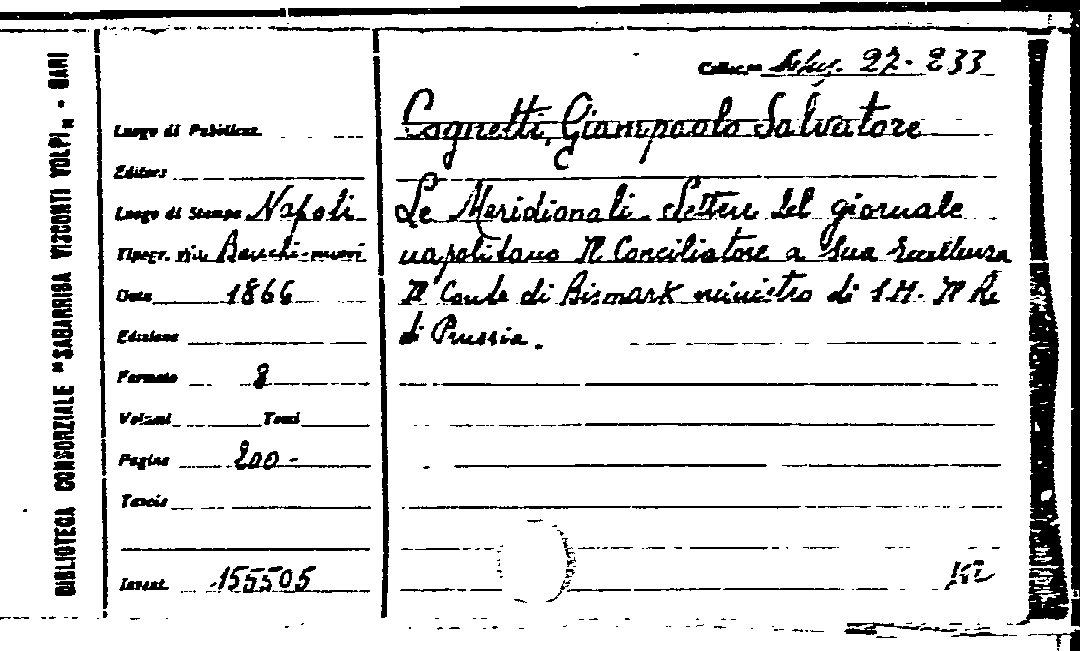 BIBLIOTECA CONSORZIALE "SAGARRIGA VISCONTI VOLPI" - BARI
Collocaz. 27-233
Luogo di Pubblicaz.
Editore
Luogo di Stampa Napoli
Tipogr.
Data 1866
Edizione
Formato 8
Volumi Tomi
Pagine 200-
Fascic
Invent. 155505
Cognetti, Giampaolo Salvatore
Le Meridionali. Lettere del giornale
napolitano Il Conciliatore a Sua Eccellenza
Il Conte di Bismark ministro di S.M. Il Re
di Prussia.